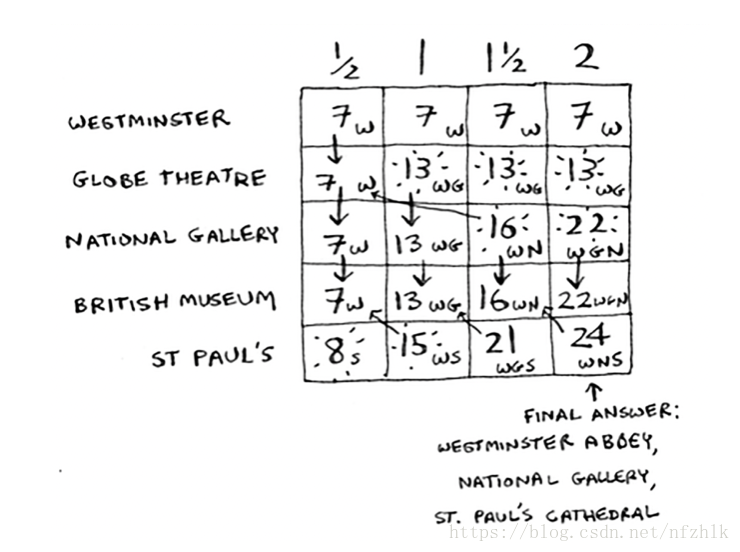 ½ 1 1½ 2
WESTMINSTER 7 W 7 W 7 W 7 W
GLOBE THEATRE 7 W 13 WG 13 WG 13 WG
NATIONAL GALLERY 7 W 13 WG 16 WN 22 WGN
BRITISH MUSEUM 7 W 13 WG 16 WN 22 WGN
ST PAUL'S 8 S 15 WS 21 WGS 24 WNS
FINAL ANSWER:
WESTMINSTER ABBEY,
NATIONAL GALLERY,
ST. PAUL'S CATHEDRAL
https://blog.csdn.net/nfzhlk